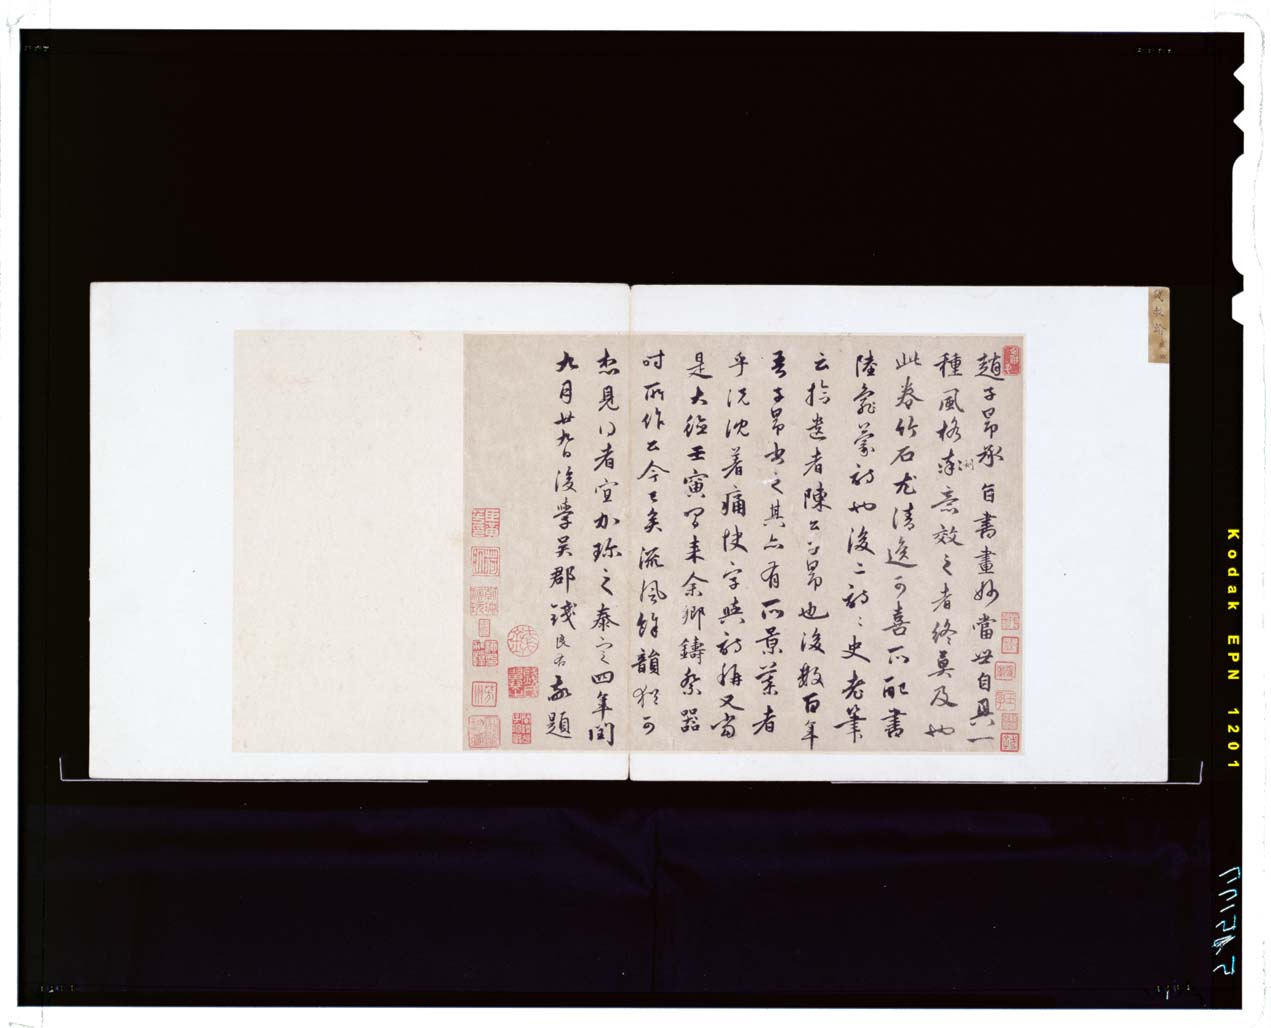 趙子昂承旨書畫妙當世自具一
種風格率意效之者終莫及也
此卷竹石尤清逸可喜所配書
陸龜蒙詩也後二詩詩史老筆
云拾遺者陳公子昂也後數百年
吾子昂書之其亦有所景慕者
乎況沈着痛快字與詩稱又當
是大德壬寅間來余鄉鑄祭器
時所作公今已矣流風餘韻猶可
想見得者宜加珍之泰定四年閏
九月廿九日後學吳郡錢良右敬題
Kodak EPN 1201